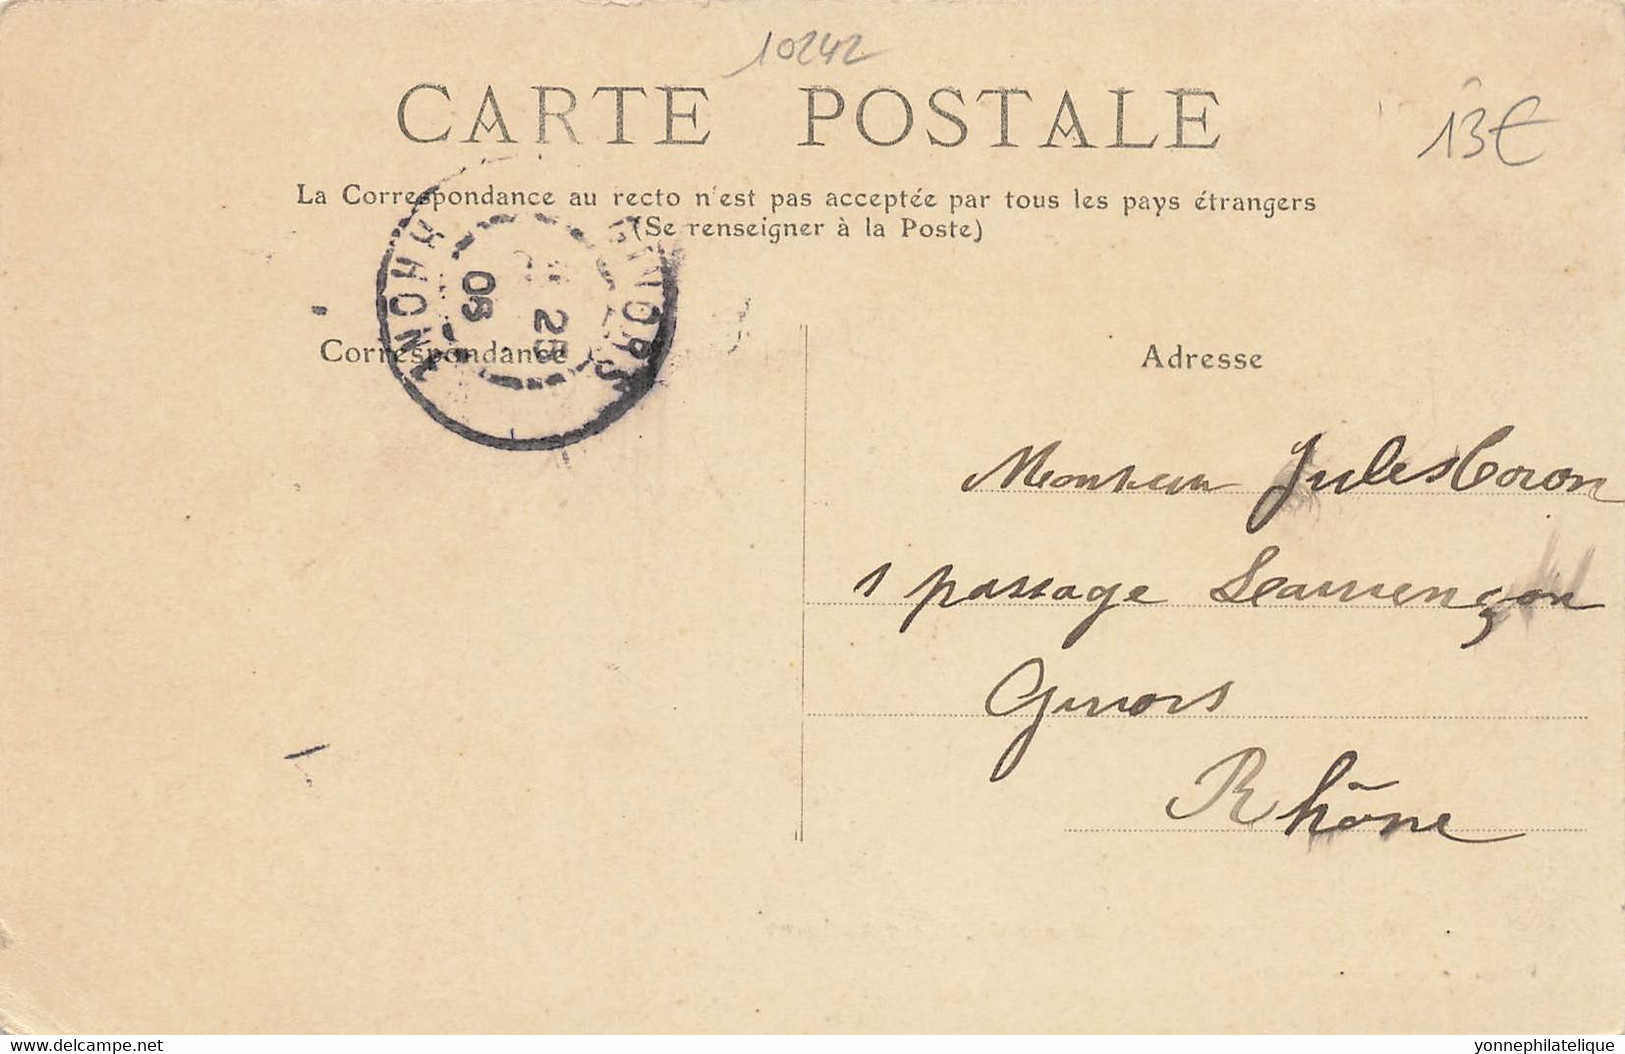 10242
CARTE POSTALE
13€
La Correspondance au recto n'est pas acceptée par tous les pays étrangers
(Se renseigner à la Poste)
GIVORS
25
08
RHONE
Correspondance
Adresse
Monsieur Jules Coron
1 passage
Givors
Rhône
www.delcampe.net
yonnephilatelique